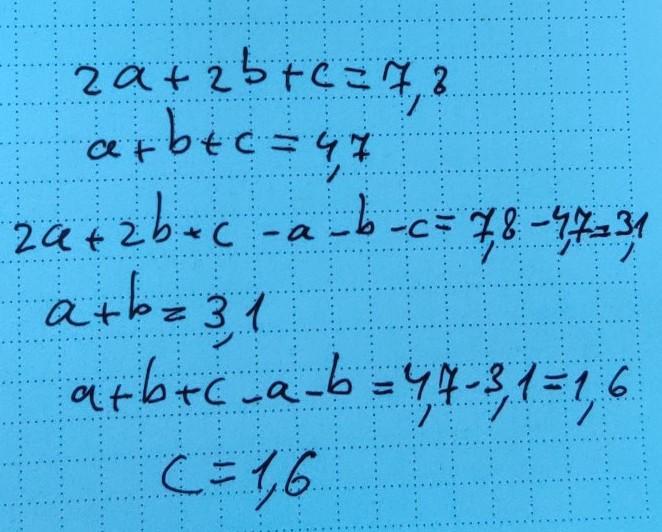 2a+2b+c=7,8
a+b+c=4,7
2a+2b+c-a-b-c=7,8-4,7=3,1
a+b=3,1
a+b+c-a-b=4,7-3,1=1,6
c=1,6